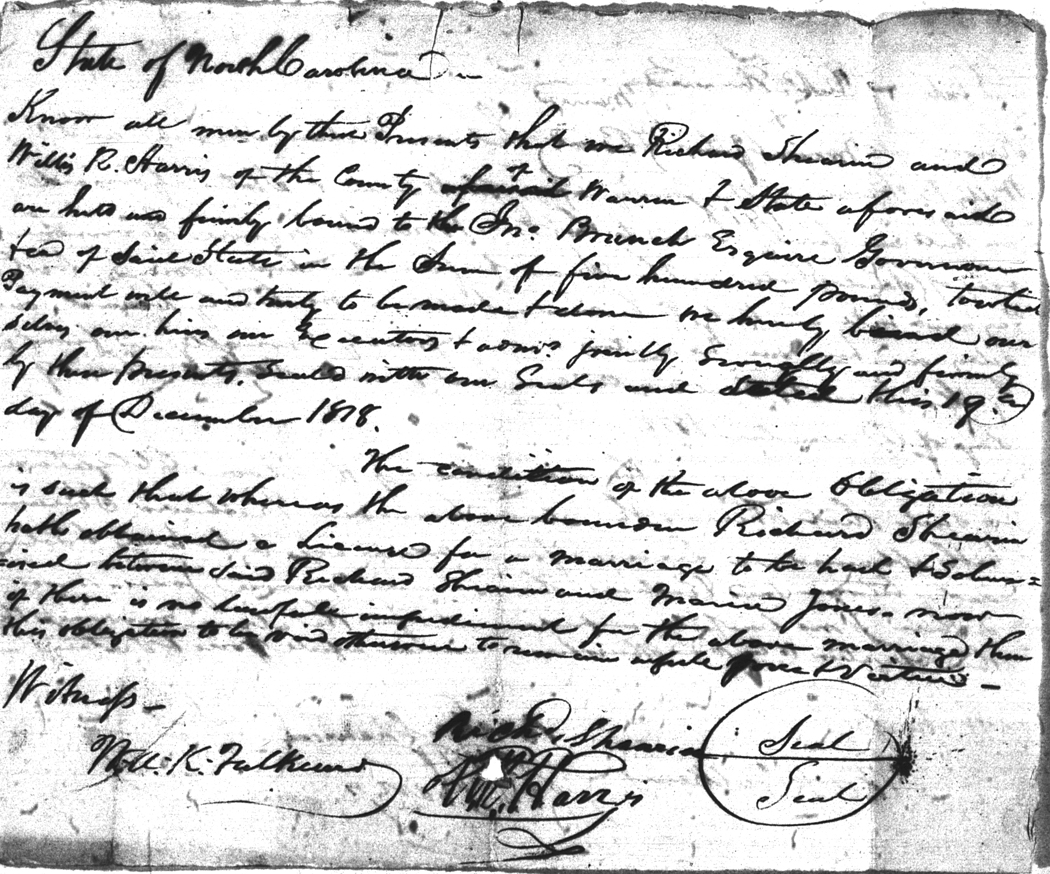 State of North Carolina
Know all men by these Presents that we Richard Shearin and
Willis R. Harris of the County of Warren & State aforesaid
are held and firmly bound to the Jno. Branch Esquire Governour
&ca of said State in the Sum of five hundred pounds, to which
Payment well and truly to be made & done we hereby bind our
selves our heirs our Executors & admrs. jointly Severally and firmly
by these presents. Sealed with our Seals and dated this 19th
day of December 1818.
The condition of the above Obligation
is such that whereas the above bounden Richard Shearin
hath obtained a License for a marriage to be had & Solem=
nized between said Richard Shearin and Maria Jones. now
if there is no lawfull impediment for the above marriage then
this obligation to be void otherwise to remain in full force & Virtue —
Witness —
Will. K. Falkener
Richd Shearin Seal
Harris Seal